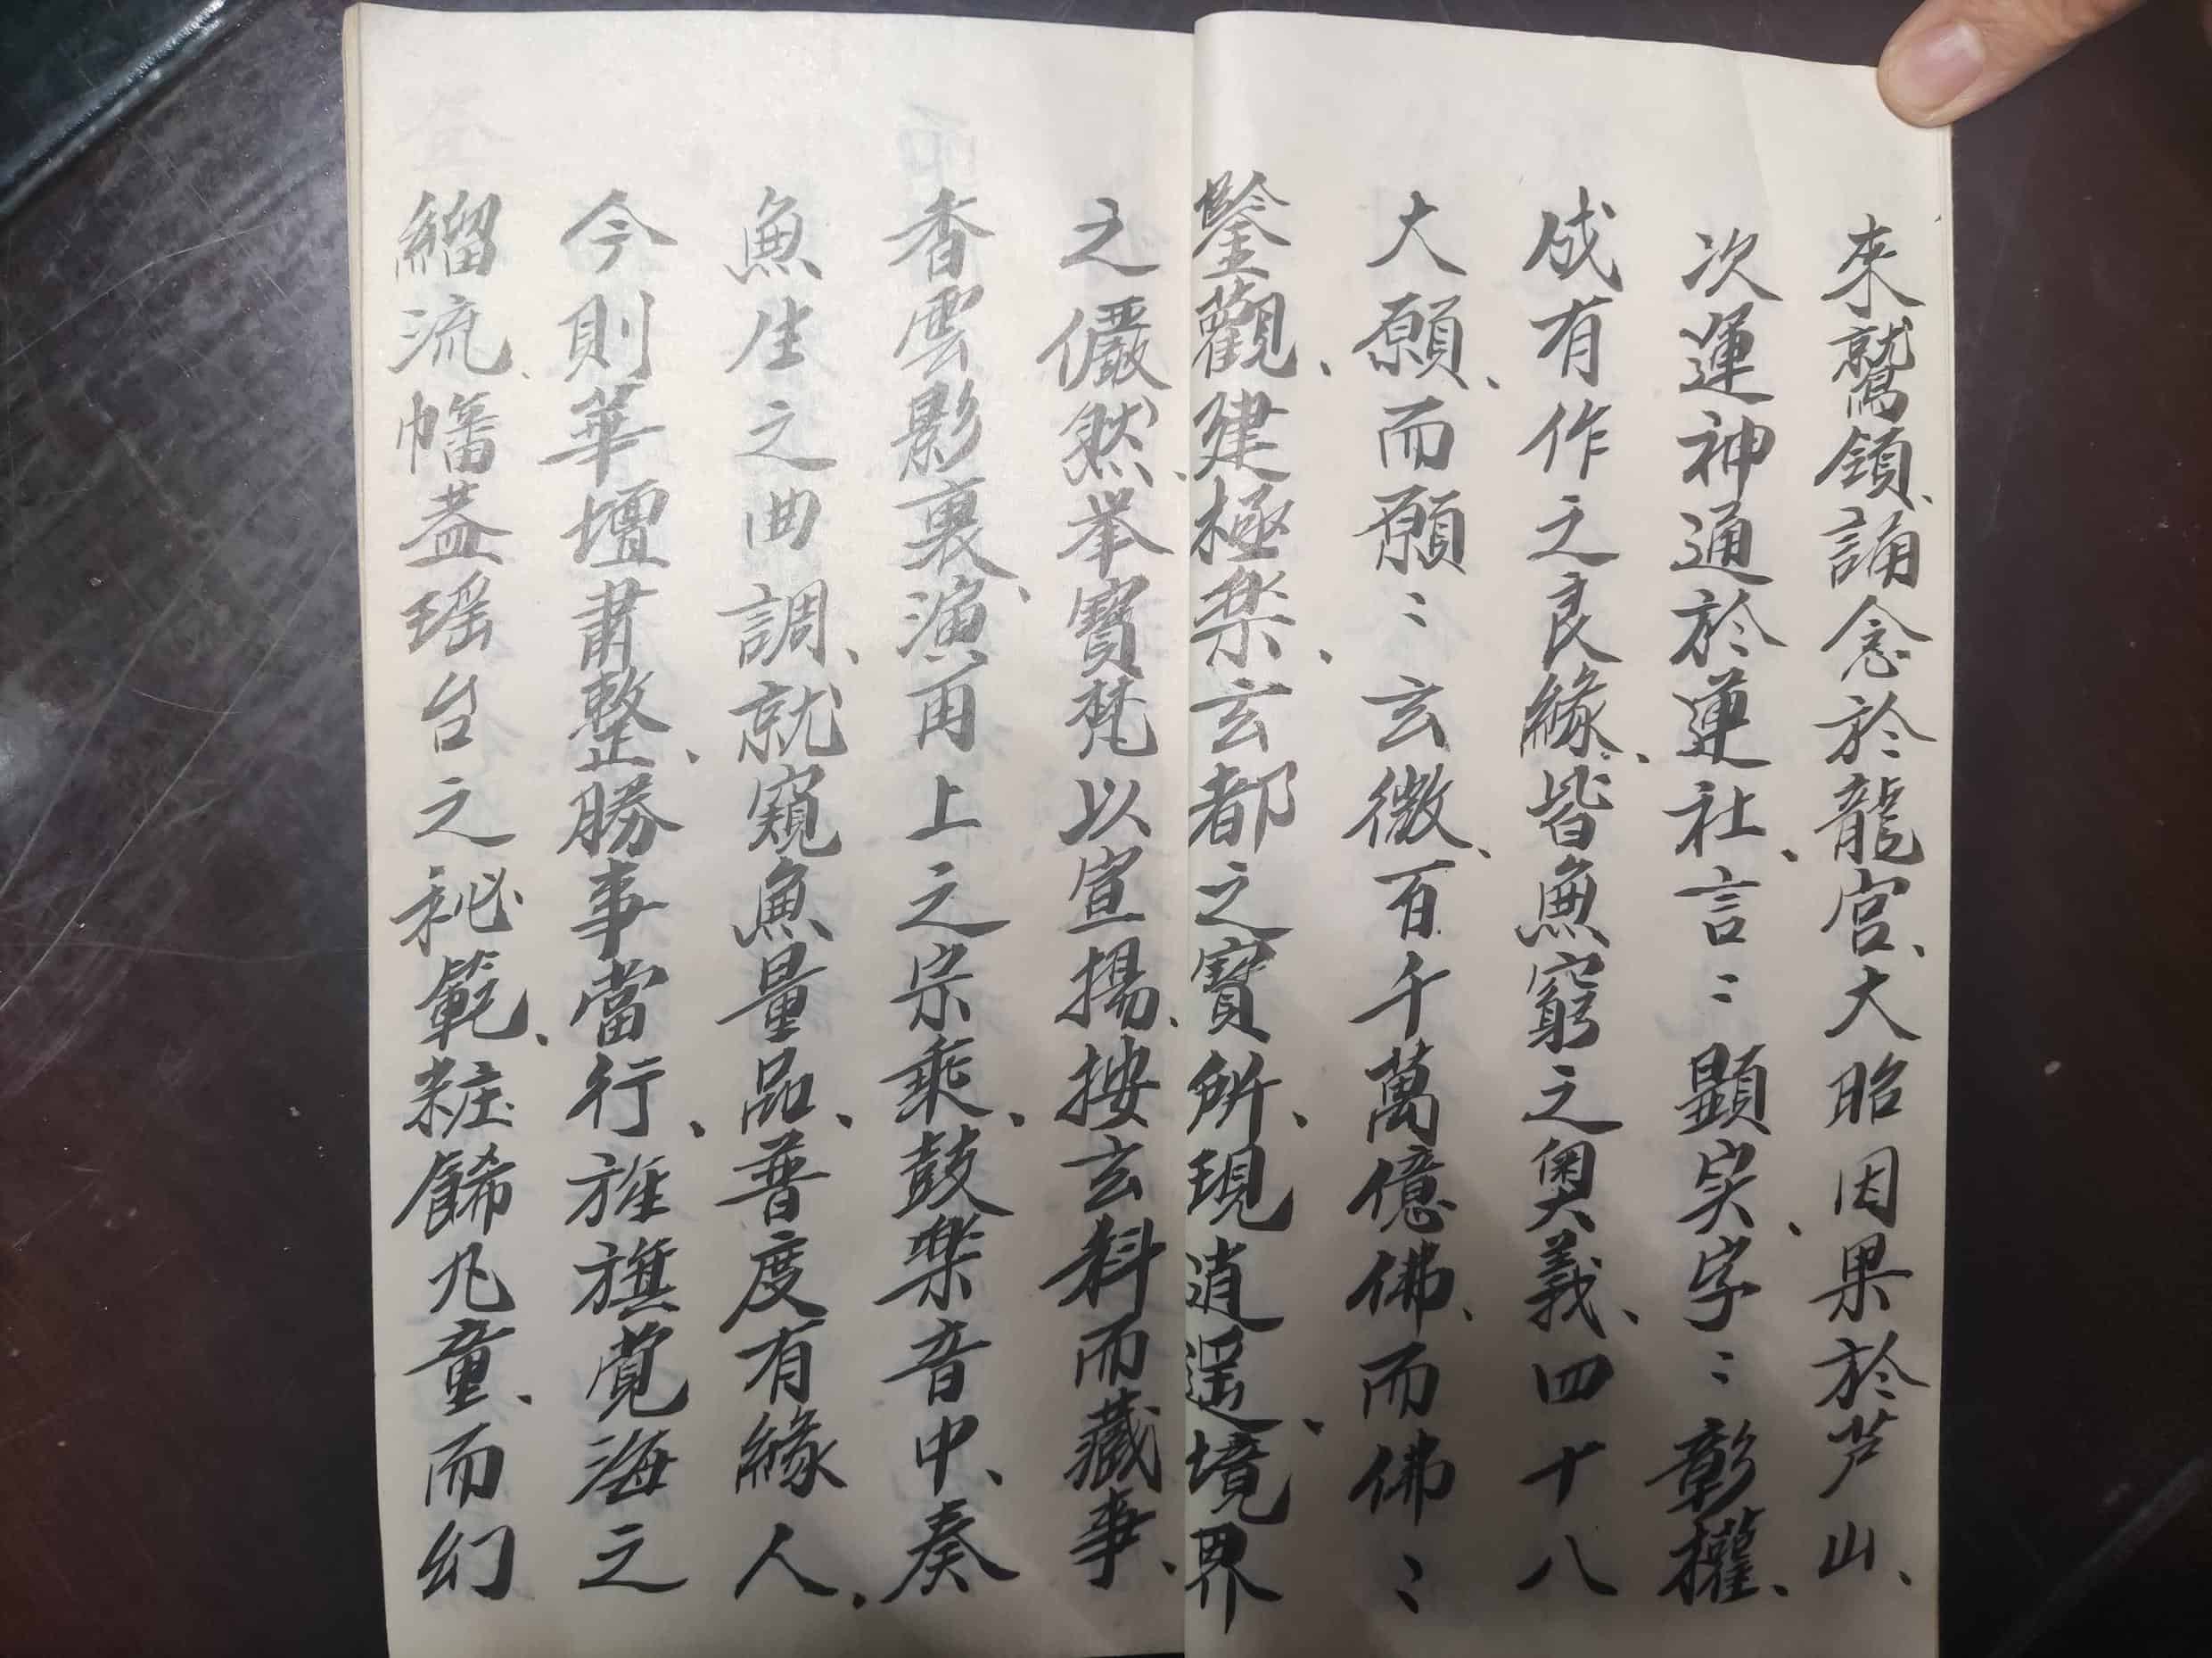 來鷲領、誦念於龍宫、大昭因果於芦山、
次運神通於蓮社、言〻顕実、字〻彰權、
成有作之良緣、皆無窮之奧義、四十八
大願、而願〻玄微、百千萬億佛、而佛〻
鑒觀、建極楽、玄都之寶所、現逍遥、境界
之儼然、举寶梵以宣揚、按玄科而蕆事、
香雲影裏、演再上之宗乘、鼓楽音中、奏
無生之曲調、就窺無量品、普度有緣人、
今則華壇肅整、勝事當行、旌旗覚海之
緇流、幡蓋瑶台之秘範、粧餙九童、而幻